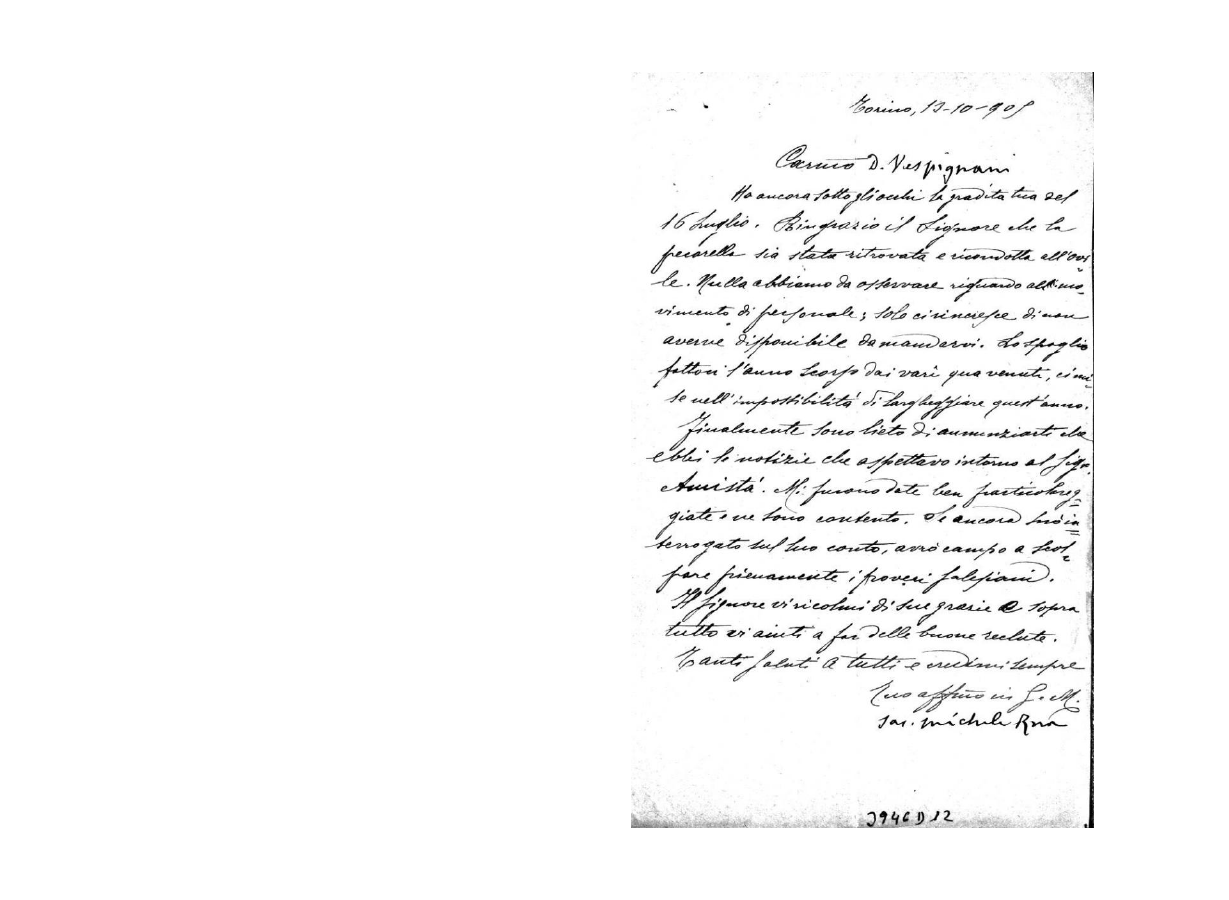 Torino, 13-10-905
Carmo D. Vespignani
Ho ancora sottogliocchi la gradita tua del
16 Luglio. Ringrazio il Signore che la
pecorella sia stata ritrovata e ricondotta all'ovi-
le. Nulla abbiamo da osservare riguardo al mo-
vimento di personale; solo ci rincresce di non
averne disponibile da mandarvi. Lo spoglio
fattoci l'anno scorso dai vari qua venuti, ci mi-
se nell'impossibilità di largheggiare quest'anno.
Finalmente sono lieto di annunziarti che
ebbi le notizie che aspettavo intorno al Sigr.
Amistà. Mi furono date ben particolareg=
giate e ne sono contento. Se ancora sarò in=
terrogato sul suo conto, avrò campo a scol-
pare pienamente i poveri Salesiani.
Il Signore vi ricolmi di sue grazie e sopra
tutto vi aiuti a far delle buone reclute.
Tanti saluti a tutti e credimi sempre
Tuo affmo in G. e M.
Sac. Michele Rua
3946 D 12